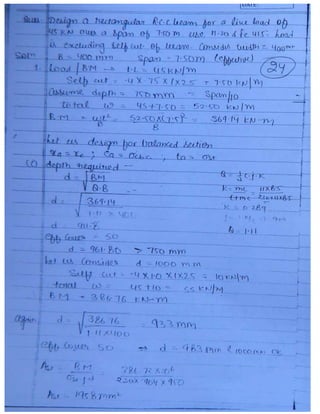 Design a rectangular R.C.C beam for a live load of
45 KN over a span of 7.50 m use M-20 & Fe 415. load
is excluding self wt of beam. Consider width = 400mm
Solⁿ B = 400 mm Span = 7.50m (effective)
24
1. Load / BM → L.L = 45KN/m
Self wt = .4 x .75 x 1 x 25 = 7.50 KN/m
Assume depth = 750mm = Span/10
total w = 45+7.50 = 52.50 KN/m
B.M = wl²/8 = 52.50 x (7.5)²/8 = 369.14 KN-m
Let us design for balanced section
(1) depth required —
d = √BM/Q.B
d = √369.14/1.11 x 400
d = 911.8
eff cover = 50
d = 961.80 > 750 mm
let us Consider d = 1000 mm
Self wt = .4 x 1.0 x 1 x 25 = 10 KN/m
total w = 45+10 = 55 KN/m
B.M = 386.76 KN-m
Again, d = √386.76/1.11x400 = 933 mm
eff cover 50 ⇒ d = 983 mm 1000mm OK
Ast = BM
Ast = 1958 mm²